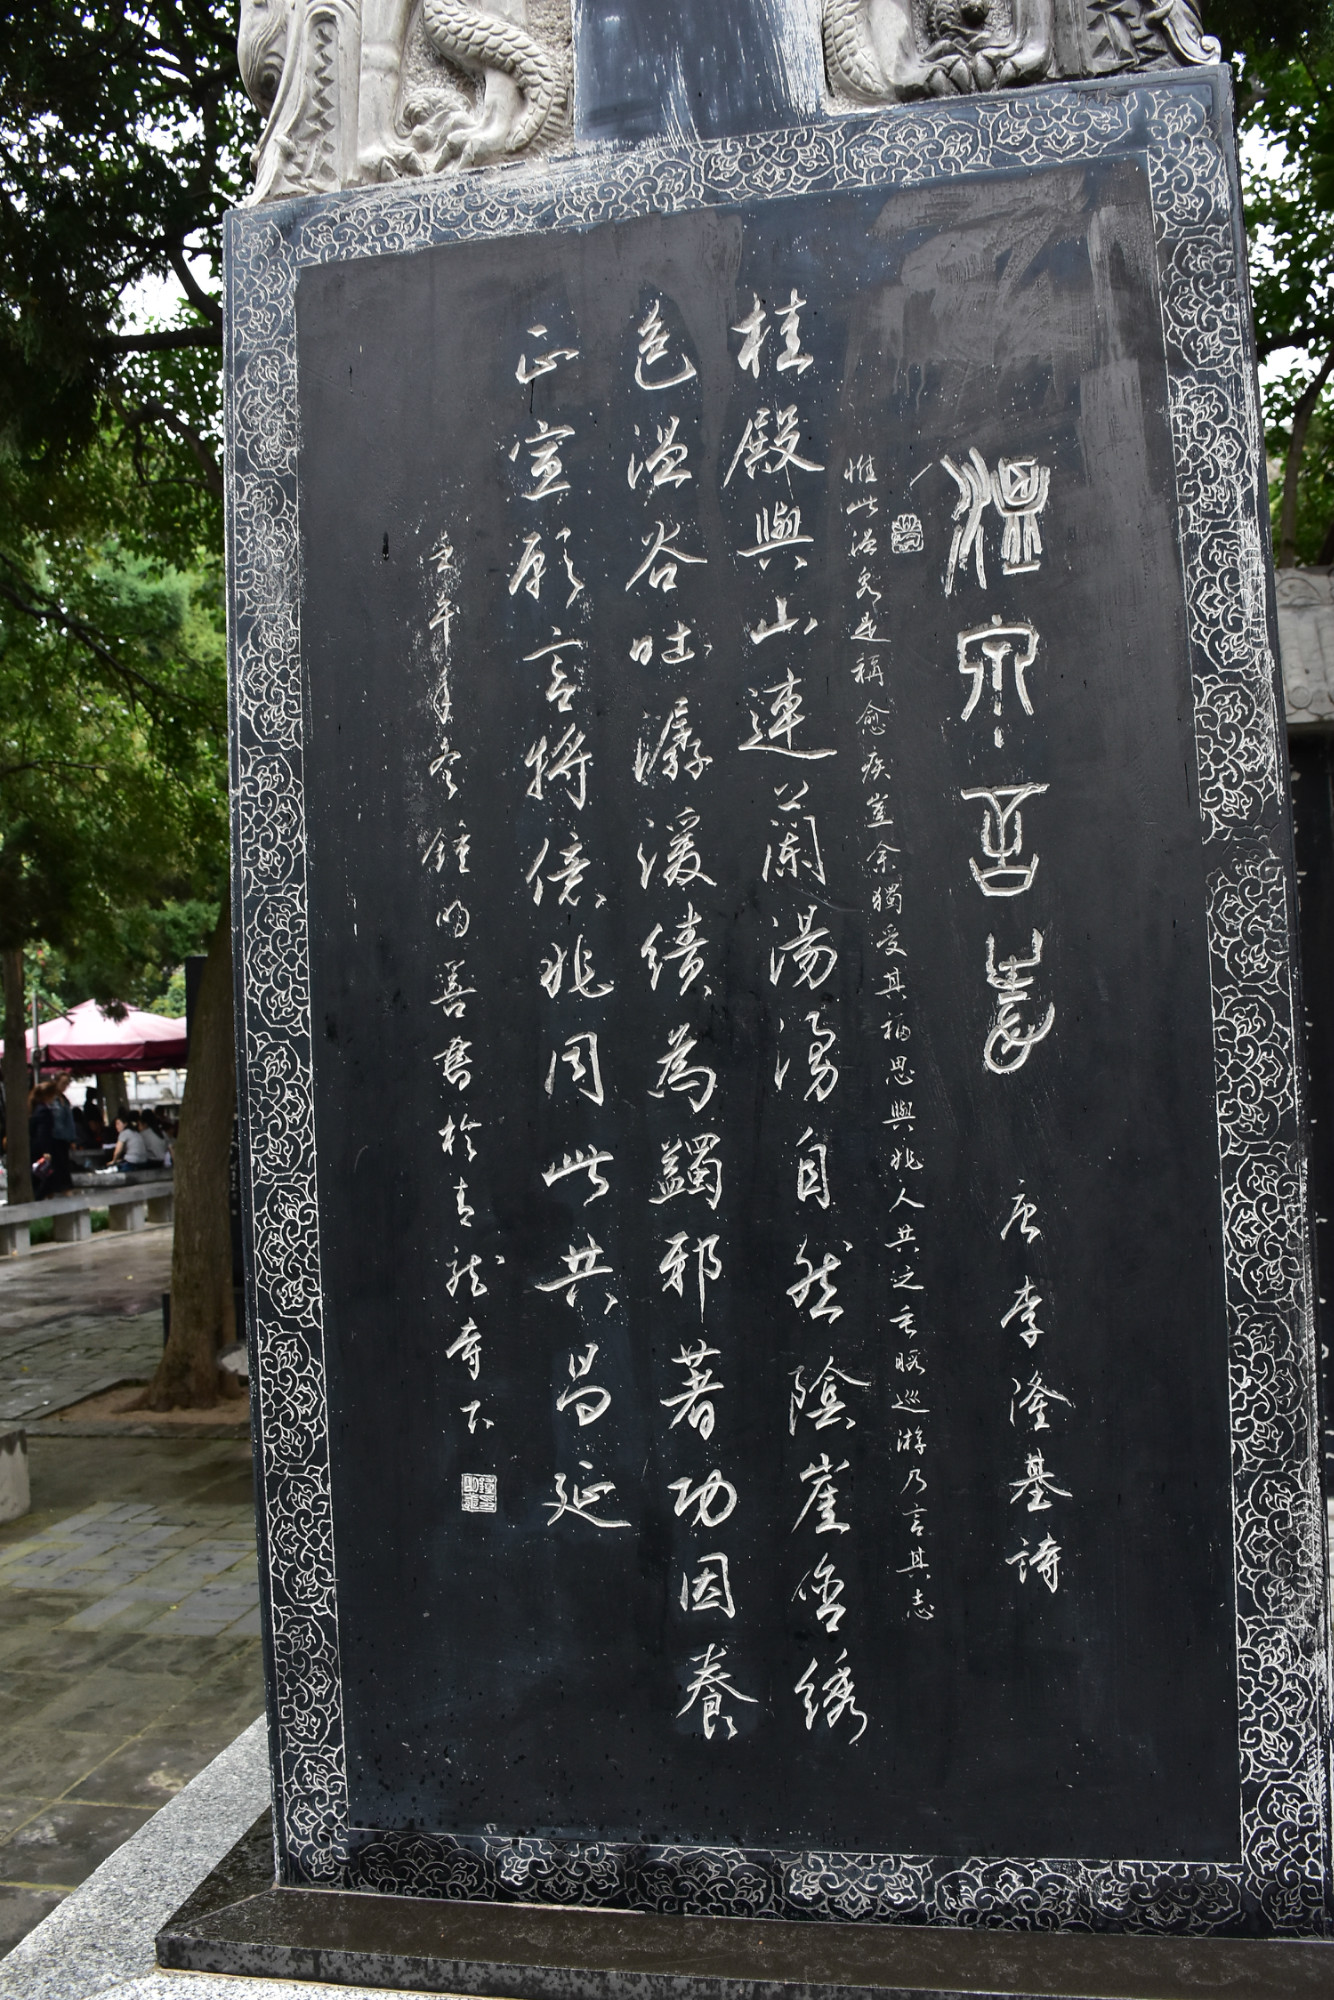 温泉言志 唐李隆基詩
惟此温泉是稱愈疾豈余獨受其福思與兆人共之乘暇巡游乃言其志
桂殿與山連蘭湯湧自然陰崖含綉
色温谷吐潺湲績為蠲邪著功因養
正宣願言將億兆同此共昌延
年冬鍾明善書於青龍寺下